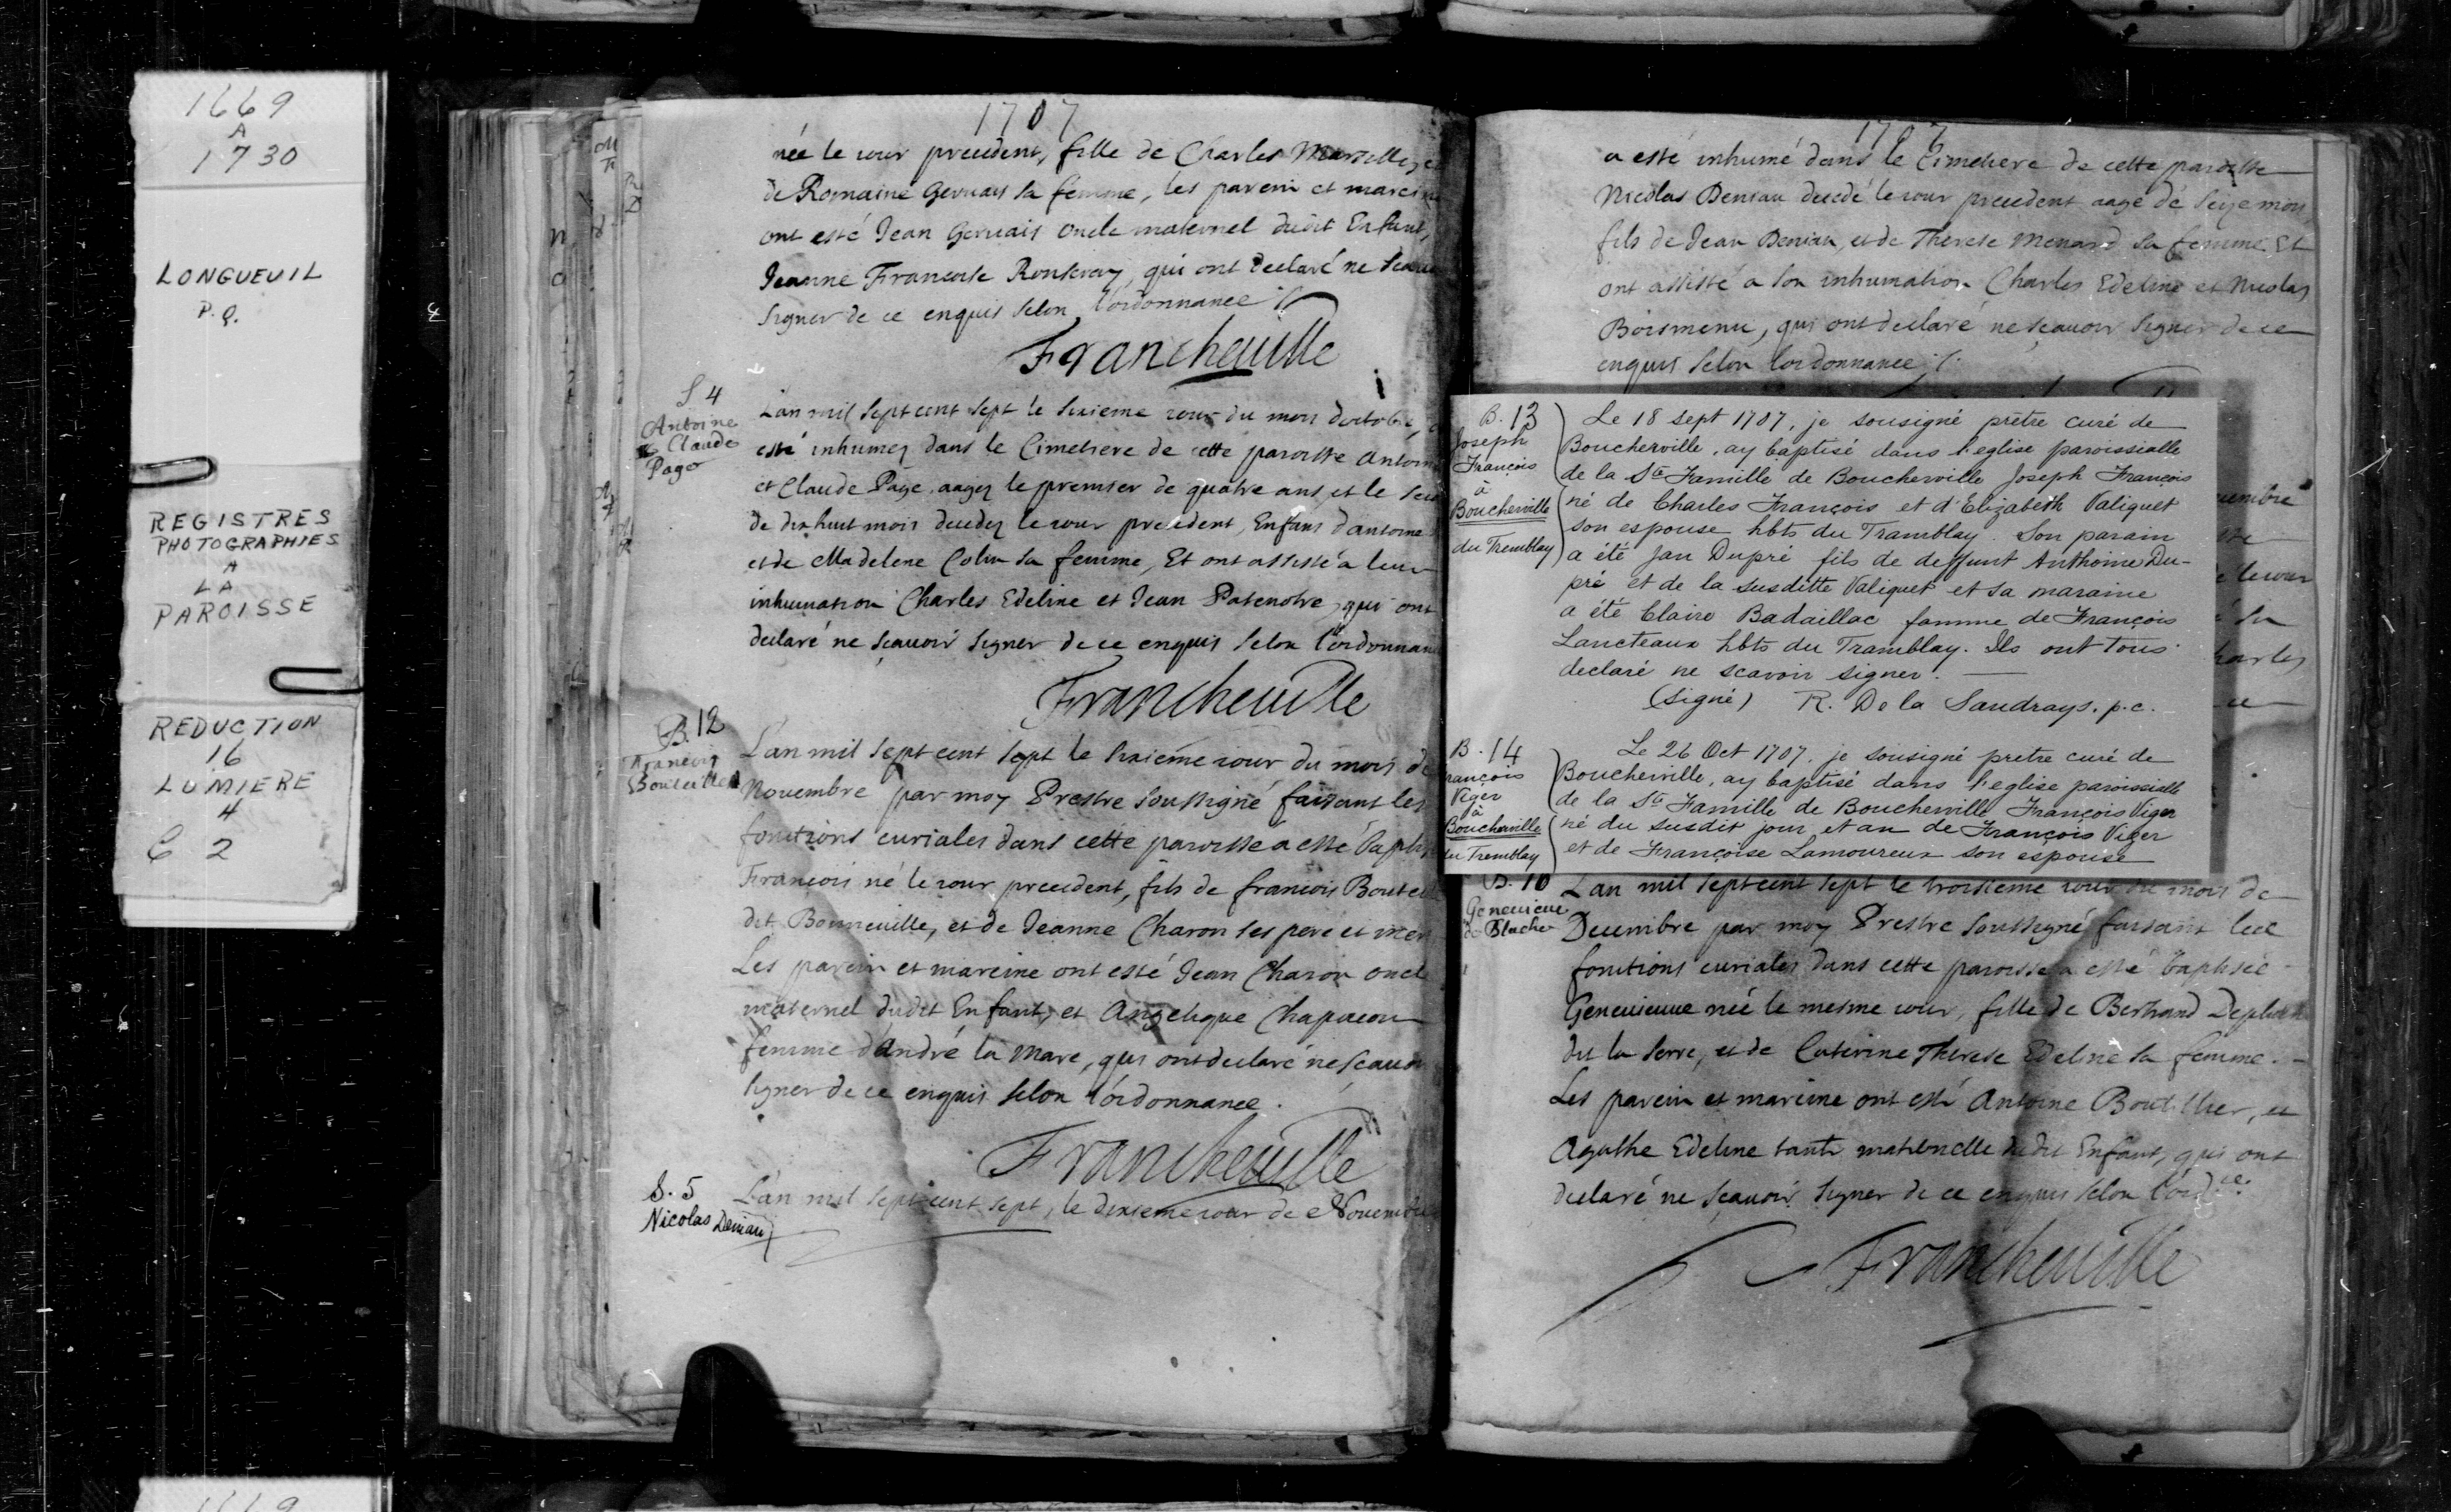 1669
A
1730
LONGUEUIL
P.Q.
REGISTRES
PHOTOGRAPHIES
A
LA
PAROISSE
REDUCTION
16
LUMIERE
4
C 2
1707
née le iour precedent, fille de Charles Marsille, e
de Romaine Gervais sa femme, les parein et marein
ont esté Jean Gervais oncle maternel dudit Enfant,
Jeanne Francoise Rouseray, qui ont declaré ne scau
signer de ce enquis selon l'ordonnance
Francheuille
S 4
Antoine
Claude
Page
L'an mil sept cent sept le sixieme iour du mois doctobre,
esté inhumez dans le Cimetiere de cette paroisse Antoin
et Claude Page, aagez le premier de quatre ans, et le sec
de dixhuit mois decedez le iour precedent, Enfans d'antoine
et de Madelene Colin sa femme, Et ont assisté a leur
inhumation Charles Edeline et Jean Patenotre, qui ont
declaré ne sçauoir signer de ce enquis selon l'ordonnan
Francheuille
B. 12
Francois
Bouteille
L'an mil sept cent sept le sixieme iour du mois de
Nouembre par moy Prestre soussigné faisant les
fonctions curiales dans cette paroisse a esté bapti
Francois né le iour precedent, fils de francois Boutei
dit Bonneuille, et de Jeanne Charon ses pere et mer
Les parein et mareine ont esté Jean Charon oncl
maternel dudit Enfant, et Angelique Chapacou
femme d'André la Mare, qui ont declaré ne scauoi
signer de ce enquis selon l'ordonnance.
Francheuille
S. 5
Nicolas Deniau
L'an mil sept cent sept, le dixieme iour de Nouembre
1707
a esté inhumé dans le Cimetiere de cette paroisse
Nicolas Deniau decedé le iour precedent aagé de seize mois
fils de Jean Deniau, et de Therese Menard sa femme. Et
ont assisté a son inhumation Charles Edeline et Nicolas
Boismenu, qui ont declaré ne scauoir signer de ce
enquis selon l'ordonnance
B. 13
Joseph
François
à
Boucherville
du Tremblay
Le 18 sept 1707, je sousigné prêtre curé de
Boucherville, ay baptisé dans l'eglise paroissialle
de la Ste Famille de Boucherville Joseph François
né de Charles François et d'Elizabeth Valiquet
son espouse hbts du Tramblay. Son parain
a été Jan Dupré fils de deffunt Anthoine Du-
pré et de la susditte Valiquet et sa maraine
a été Claire Badaillac famme de François
Lancteaux hbts du Tramblay. Ils ont tous
declaré ne scavoir signer.
(signé) R. De la Saudrays. p.c.
B. 14
François
Viger
à
Boucherville
du Tremblay
Le 26 Oct 1707, je sousigné pretre curé de
Boucherville, ay baptisé dans l'eglise paroissialle
de la Ste Famille de Boucherville François Viger
né du susdit jour et an de François Viger
et de Françoise Lamoureux son espouse
B. 10
Geneuieue
L'an mil sept cent sept le troisieme iour du mois de
Decembre par moy Prestre soussigné faisant les
fonctions curiales dans cette paroisse a esté baptisée
Geneuieuue née le mesme iour, fille de Bertrand
dit la Serre, et de Caterine Therese Edeline sa femme.
Les parein et mareine ont esté Antoine Boutillier, et
Agathe Edeline tante maternelle dudit Enfant, qui ont
declaré ne sçauoir signer de ce enquis selon l'ordce.
Francheuille
1669